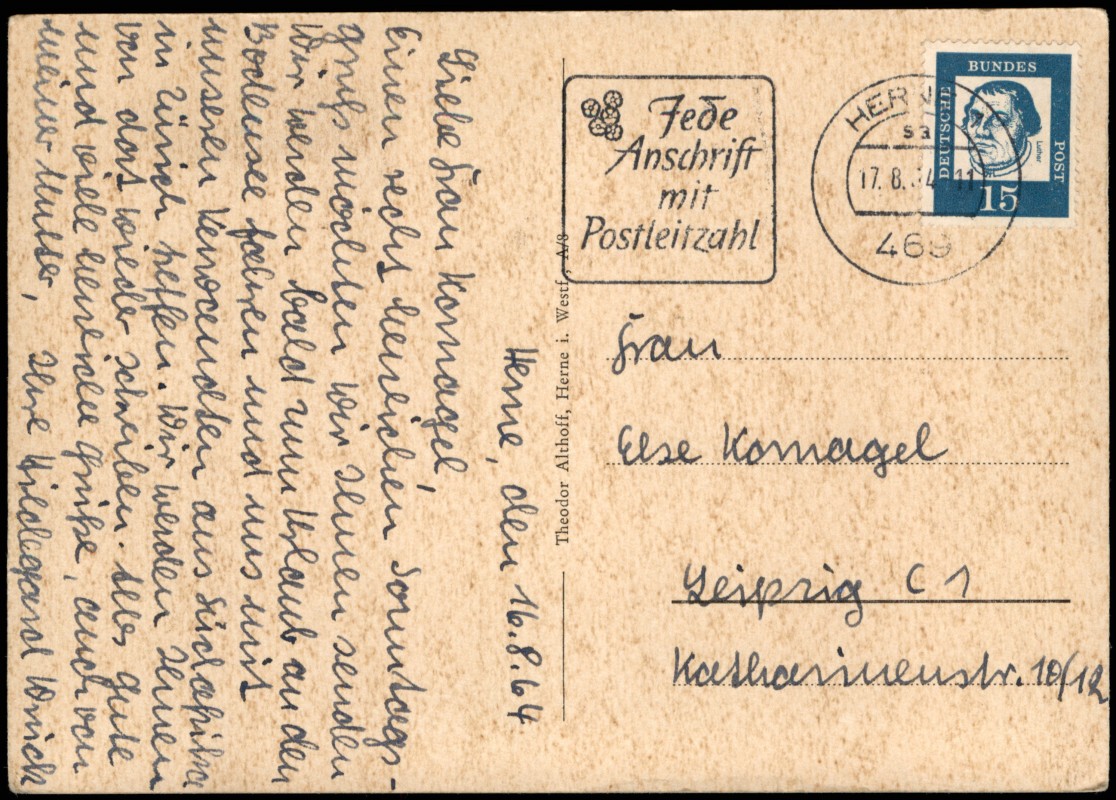 Herne, den 16.8.64
Liebe Frau Kornagel,
Einen recht herzlichen Sonntags-
gruß möchten wir Ihnen senden
Wir werden bald zum Urlaub an den
Bodensee fahren und uns mit
unseren Verwandten aus Südafrika
in Zürich treffen. Wir werden Ihnen
von dort wieder schreiben. Alles Gute
und viele herzliche Grüße, auch von
meiner Mutter, Ihre Hildegard
Theodor Althoff, Herne i. Westf., A/8
Jede
Anschrift
mit
Postleitzahl
HERNE
17. 8. 64 - 11
469
DEUTSCHE
BUNDES
POST
Luther
15
Frau
Else Kornagel
Leipzig C 1
Katharinenstr. 10/12